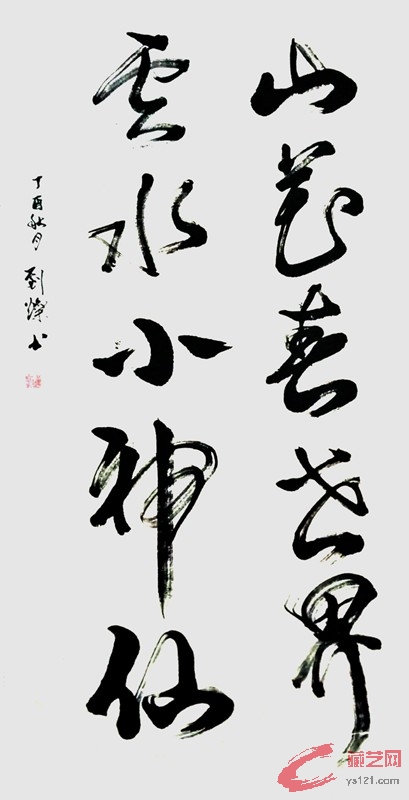 山花春世界
雲水小神仙
丁酉秋月 劉燦书
藏艺网
ys121.com